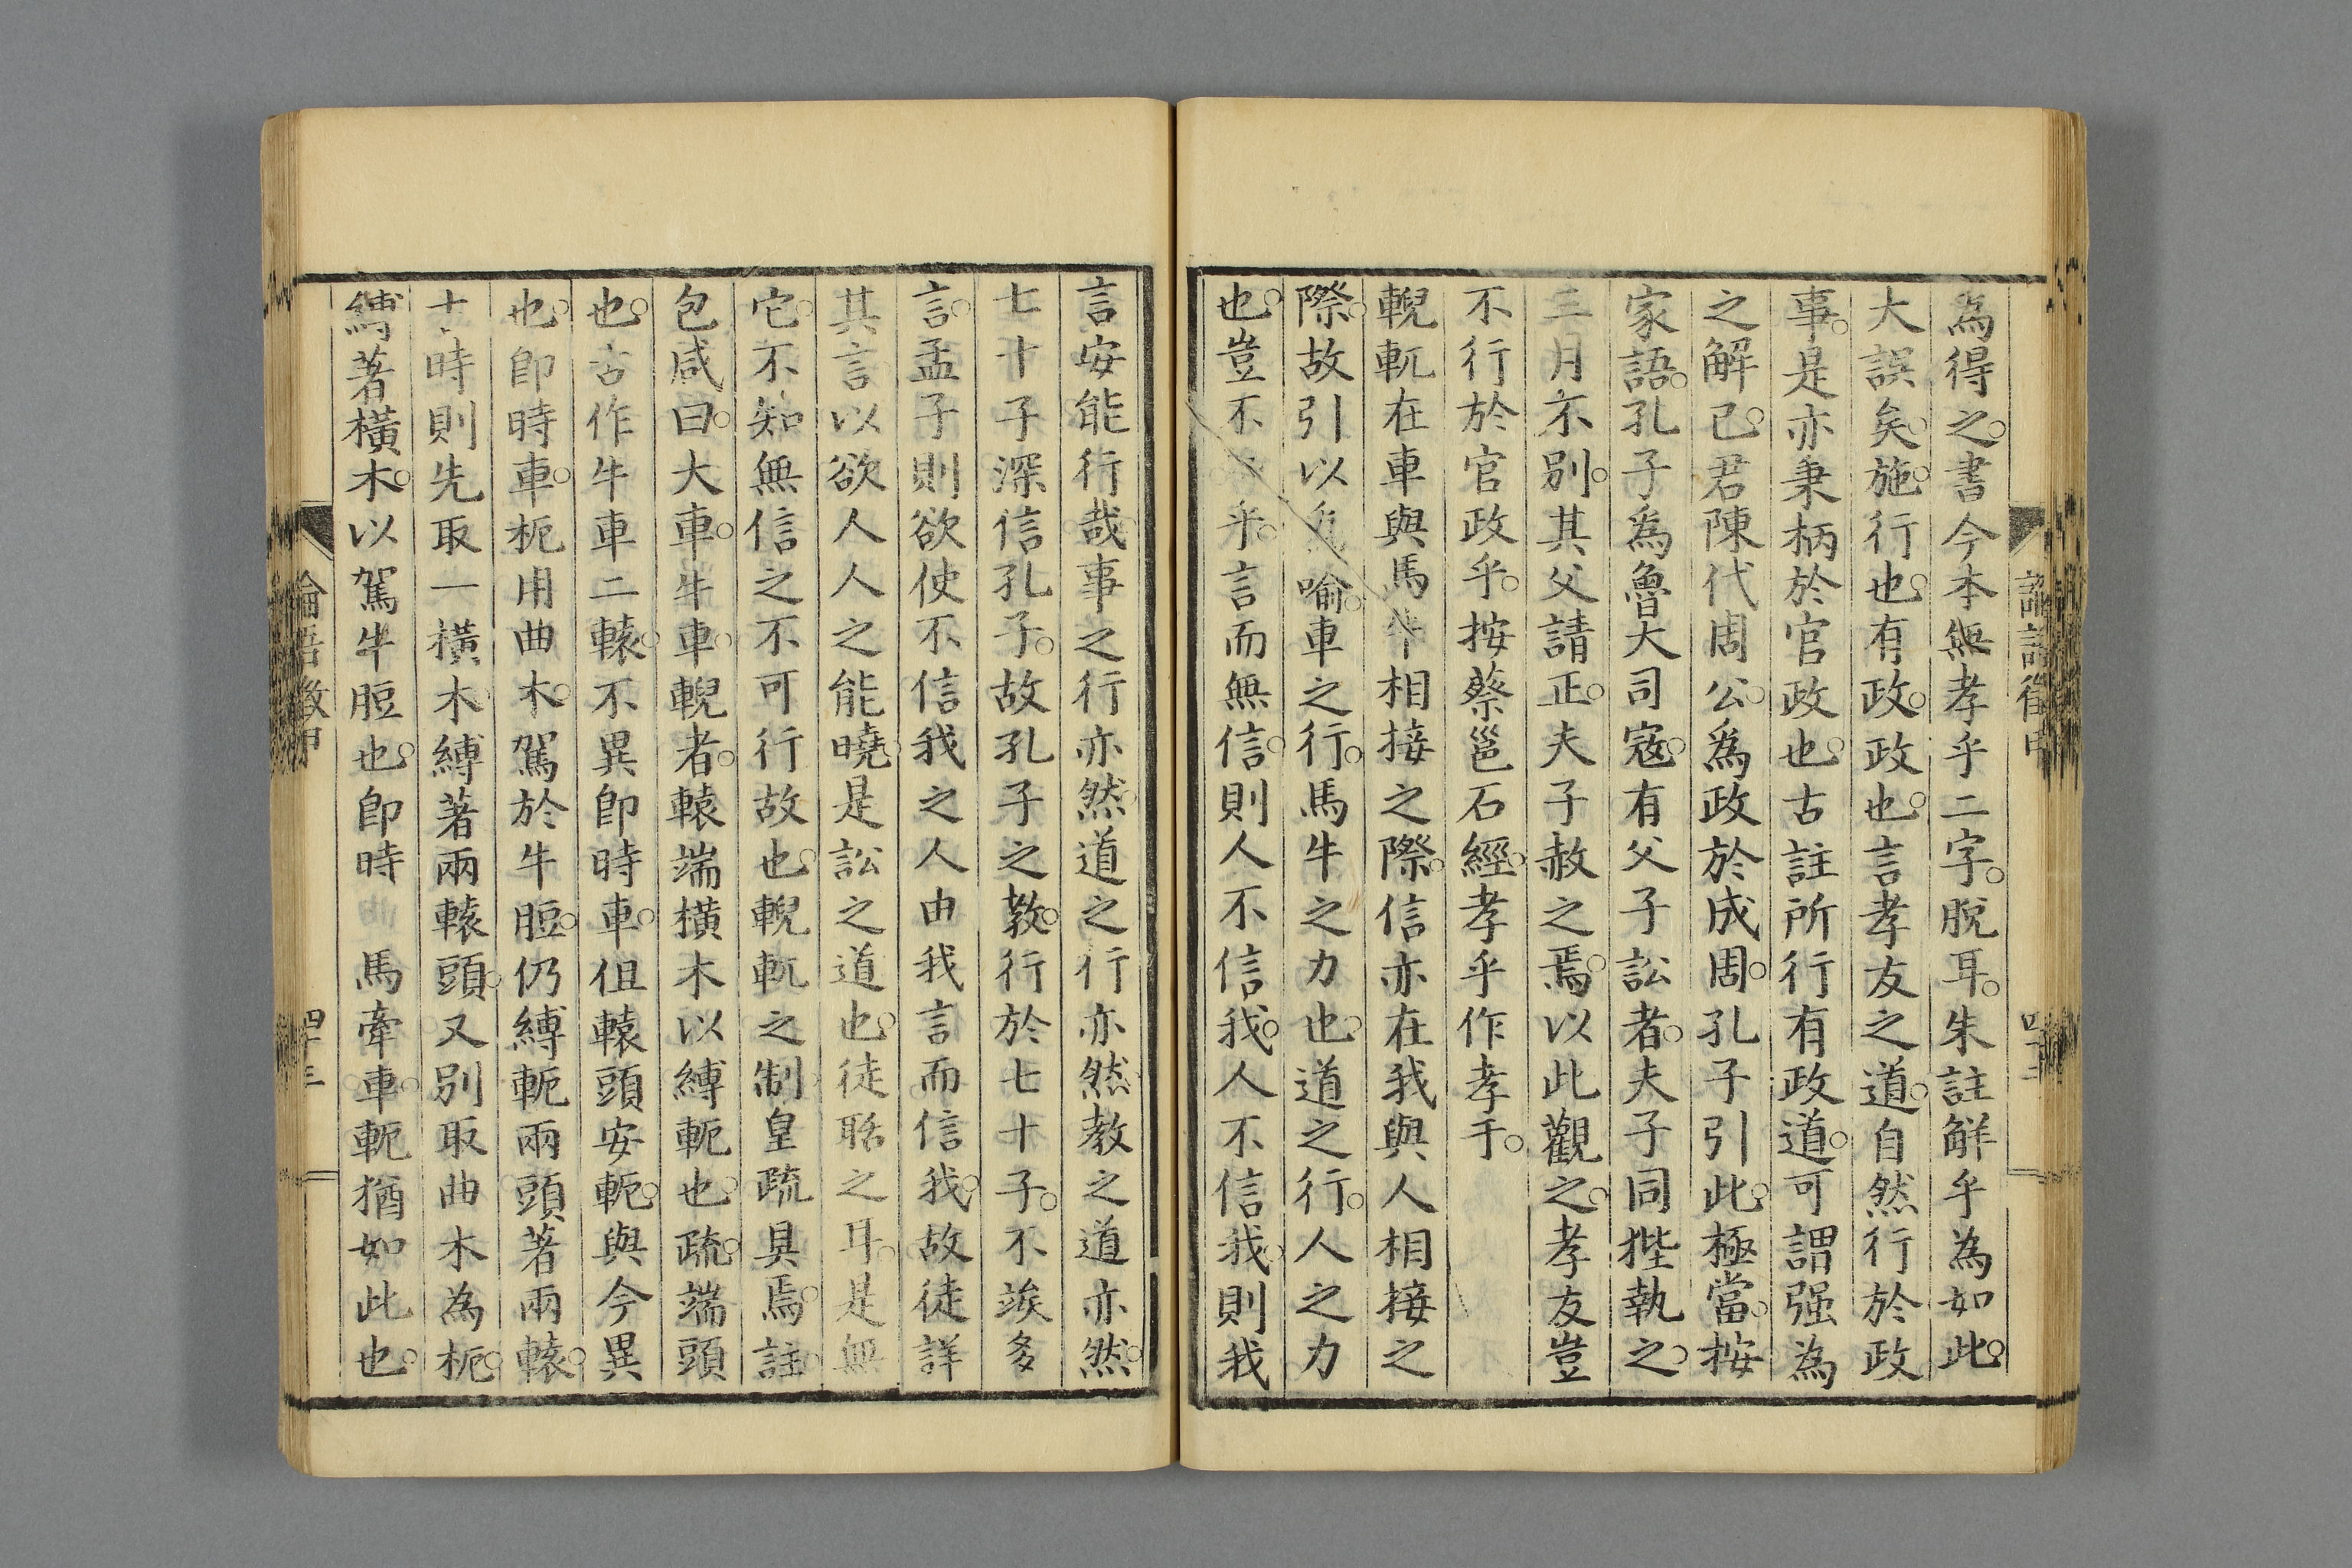 為得之。書今本無孝乎二字。脫耳。朱註觧乎為如此。
大誤矣。施。行也。有政。政也。言孝友之道。自然行於政
事。是亦秉柄於官政也。古註所行有政道。可謂强為
之解已。君陳代周公。為政於成周。孔子引此。極當。按
家語。孔子為魯大司寇。有父子訟者。夫子同狴執之。
三月不別。其父請正。夫子赦之焉。以此觀之。孝友豈
不行於官政乎。按蔡邕石經。孝乎作孝于。
輗軏在車與馬牛相接之際。信亦在我與人相接之
際。故引以為喻。車之行。馬牛之力也。道之行。人之力
也。豈不乎。言而無信。則人不信我。人不信我。則我
言安能行哉。事之行亦然。道之行亦然。教之道亦然。
七十子深信孔子。故孔子之教。行於七十子。不竢多
言。孟子則欲使不信我之人由我言而信我。故徒詳
其言以欲人人之能曉。是訟之道也。徒聒之耳。是無
它。不知無信之不可行故也。輗軏之制。皇疏具焉。註。
包咸曰。大車。牛車。輗者。轅端橫木以縛軛也。疏。端頭
也。古作牛車二轅。不異即時車。但轅頭安軛。與今異
也。即時車。枙用曲木。駕於牛脰。仍縛軛兩頭著兩轅。
古時則先取一橫木縛著兩轅頭。又別取曲木為枙。
縛著橫木。以駕牛脰也。即時馬牽車。軛猶如此也。
論語徵甲
四十三